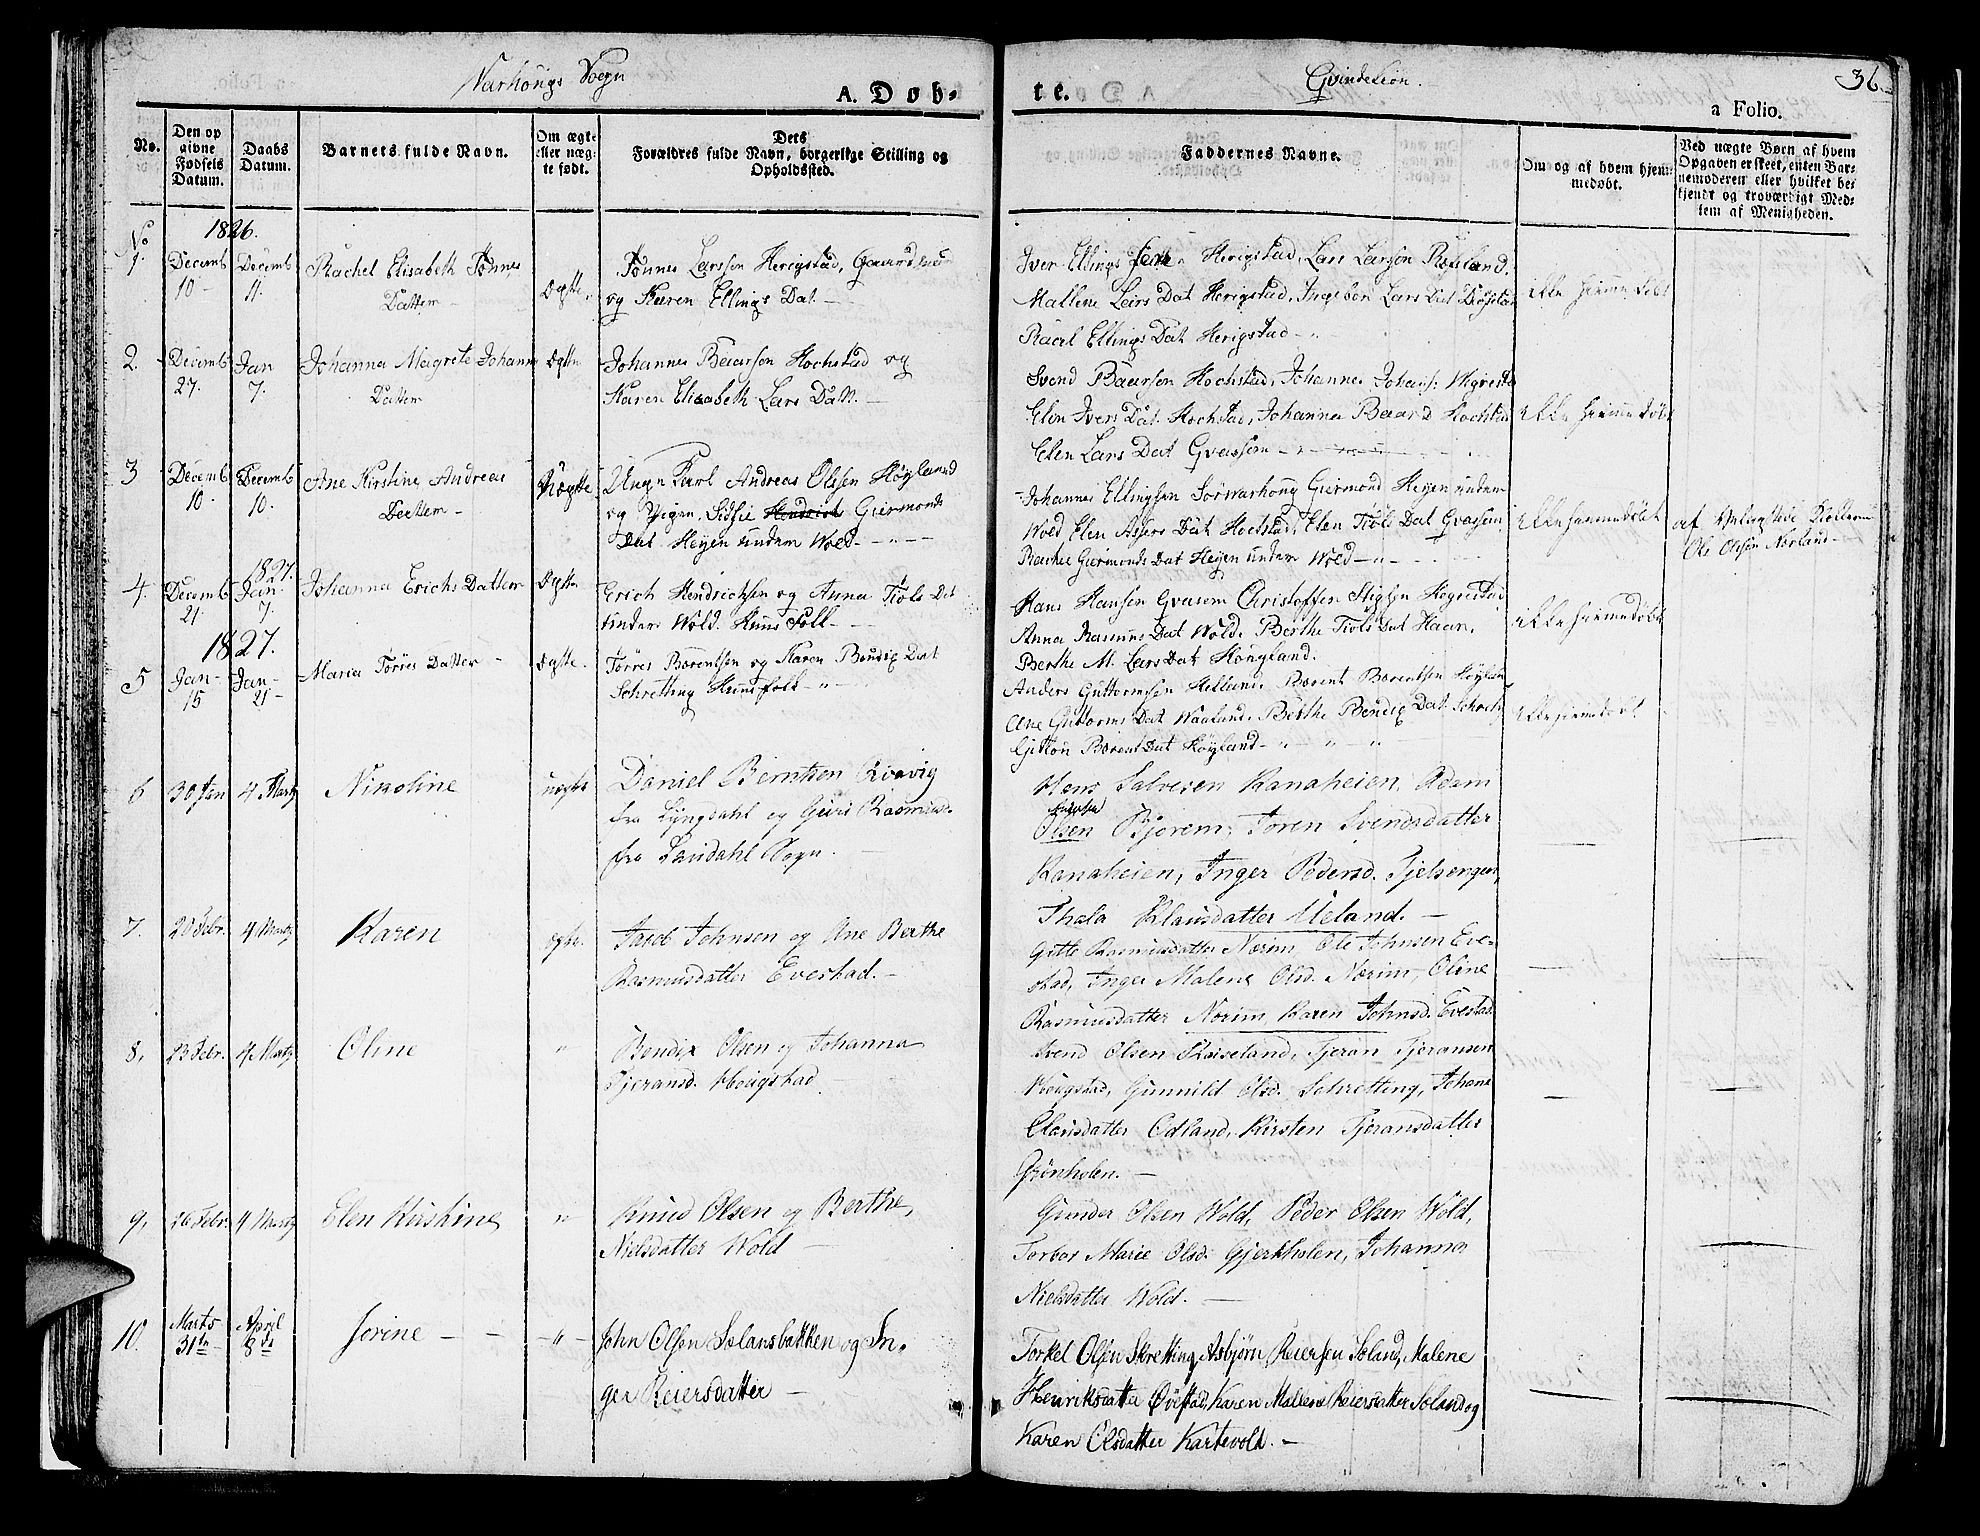 Varhougs Sogn
Qvindekiön.
36
A. Døb-
te.
a Folio.
No.
Den opgivne Fødsels Datum.
Daabs Datum.
Barnets fulde Navn.
Om ægte eller uægte født.
Dets Forældres fulde Navn, borgerlige Stilling og Opholdssted.
Faddernes Navne.
Om og af hvem hjemmedøbt.
Ved uægte Børn af hvem Opgaven er skeet, enten Barnemoderen eller hvilket bekjendt og troværdigt Medlem af Menigheden.
No 1826.
1. Decemb 10 Decemb 11. Rachel Elisabeth Tønnes Datter Ægte. Tønnes Larsson Herigstad, Gaardmand
og Karen Ellings Dat
Iver Ellings Herigstad, Lars Larson
Mallene Lars Dat Herigstad, Ingebor Lars Dat
Rael Ellings Dat Herigstad
ikke hiemmedøbt
2. Decemb 27. Jan 7. Johanna Margrete Johanns Datter Ægte Johannes Baarson Hochstad og
Karen Elisabeth Lars Datt.
Svend Baarson Hochstad, Johannes Johans:
Elen Ivers Dat. Hochstad, Johanna Baard Hochstad
Elen Lars Dat Gvassem
ikke hiemmedøbt
3 Decemb 10 Decemb 10. Ane Kirstine Andreas Datter Uægte Ungn Karl Andreas Olsen Høyland
og Pigen Sidsie Giermonds
Dat Heyen undem Wold
Johannes Ellingsen Sørvarhoug Giermond Heyen undem
Wold Elen Assers Dat Hochstad, Elen Tiøls Dat Gvassem
Rachel Giermonds Dat Heyen undem Wold
ikke hiemmedøbt af
Ole Olsen Nærland
4. Decemb 21 1827. Jan. 7. Johanna Erichs Datter Ægte Erich Hendrichsen og Anna Tiøls Dat
under Wold. Huus Folk
Hans Hansen Gvasem Christoffer Stiglsen Høgrestad
Anna Rasmus Dat Wold. Berthe Tiøls Dat Haar.
Berthe M. Lars Dat Høugland.
ikke hiemmedøbt
1827.
5 Jan 15 Jan 21 Maria Tørres Datter Ægte. Tørres Børentsen og Karen Bendix Dat
Schretting Huusfolk
Anders Guttormsen Helland. Børent Børentsen Høyland
Ane Guttorms Dat Waaland. Berthe Bendix Dat Schretting
Børent Dat Høyland
ikke hiemdøbt
6 30 Jan 4 Martz Nikoline uægte Daniel Berntsen Qvavig
fra Lyngdahl og Guri Rasmusd.
fra Sogn.
Hans Salvesen Ranaheien, Adam
Olsen Bjorem, Toren Svendsdatter
Ranaheien, Inger Pedersd. Tjelsengen,
Thala Klausdatter Ueland.
7. 20 Febr. 4 Martz Karen ægte. Jacob Johnsen og Ane Berthe
Rasmusdatter Evestad.
Gitte Rasmusdatter Nærim, Ole Johnsen Eve-
stad, Inger Malene Olsd. Nærim, Oline
Rasmusdatter Nærim, Karen Johnsd. Evestad.
8, 23 Febr. 4 Martz Oline " Bendix Olsen og Johanna
Tjeransd. Hougstad
Svend Olsen Roiseland, Tjeran Tjeransen
Hougstad, Gunnild Olsd. Schretting, Johane
Clausdatter Odland, Kirsten Tjeransdatter
Grönholen.
9, 26 Febr. 4 Martz Elen Kirstine " Knud Olsen og Berthe
Nielsdatter Wold
Gunder Olsen Wold, Peder Olsen Wold,
Torbor Marie Olsd. Gjerkholen, Johanna
Nielsdatter Wold.
10. Marts 31te April 8de Serine " John Olsen Solansbakken og In-
ger Reiersdatter
Torkel Olsen Skretting, Asbjørn Reiersen Soland, Malene
Henriksdatter Øvestad, Karen Mallene Reiersdatter Soland og
Karen Olsdatter Kartevolt.